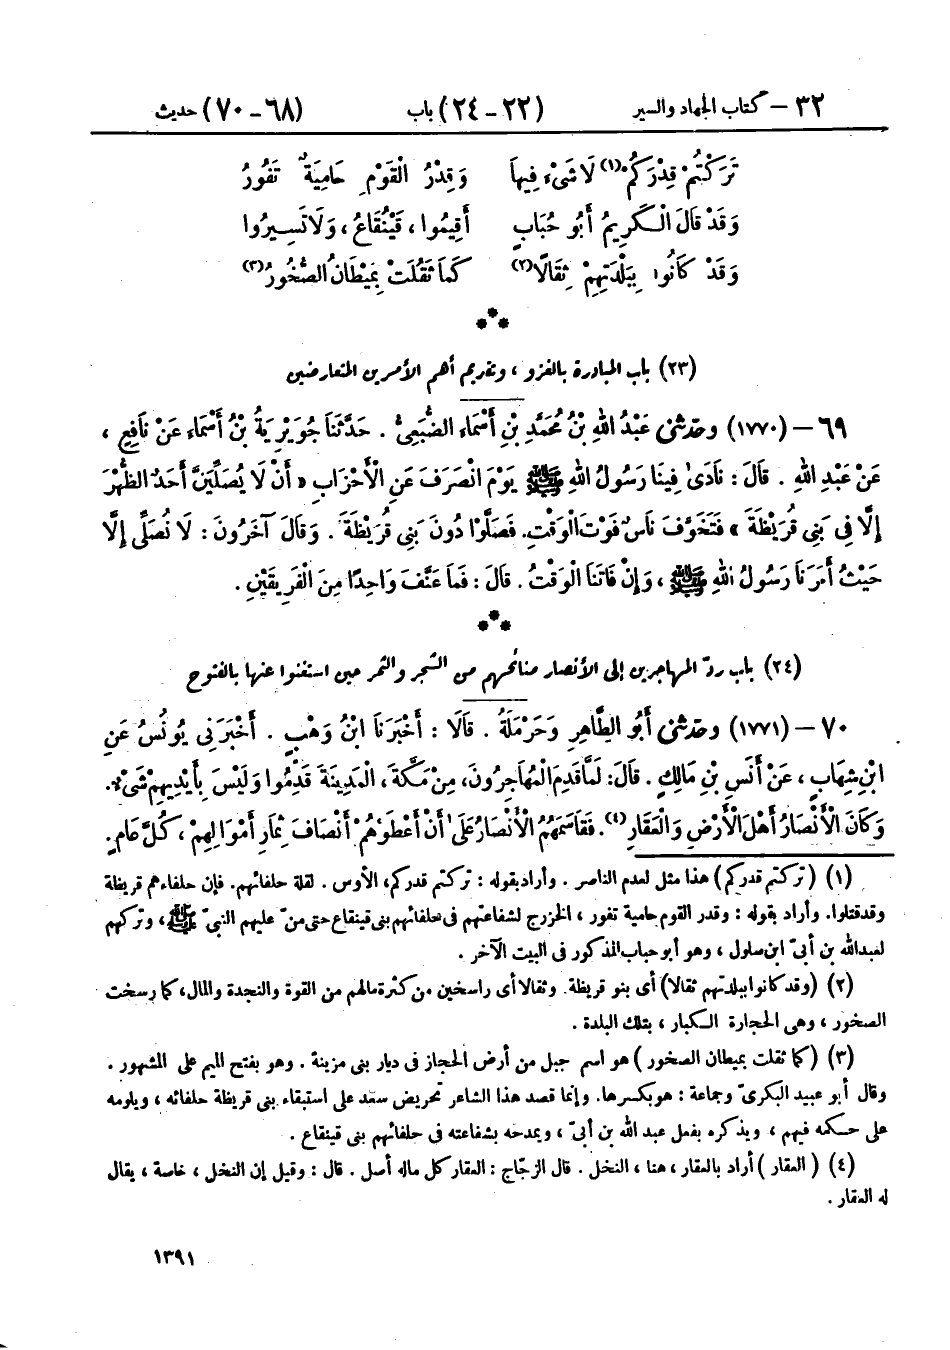 ٣٢ – كتاب الجهاد والسير (٢٢ – ٢٤) باب (٦٨ – ٧٠) حديث
تَرَكْتُمْ قِدْرَكُمْ(١) لَا شَىْءَ فِيهَا وَقِدْرُ الْقَوْمِ حَامِيَةٌ تَفُورُ
وَقَدْ قَالَ الْكَرِيمُ أَبُو حُبَابٍ أَقِيمُوا ، قَيْنُقَاعُ ، وَلَا تَسِيرُوا
وَقَدْ كَانُوا بِبَلْدَتِهِمْ ثِقَالًا(٢) كَمَا ثَقُلَتْ بِمَيْطَانَ الصُّخُورُ(٣)
***
(٢٣) باب المبادرة بالغزو ، وتقديم أهم الأمرين المتعارضين
٦٩ – (١٧٧٠) وحدثنى عَبْدُ اللهِ بْنُ مُحَمَّدِ بْنِ أَسْمَاءَ الضُّبَعِىُّ . حَدَّثَنَا جُوَيْرِيَةُ بْنُ أَسْمَاءَ عَنْ نَافِعٍ ،
عَنْ عَبْدِ اللهِ . قَالَ : نَادَىٰ فِينَا رَسُولُ اللهِ ﷺ يَوْمَ انْصَرَفَ عَنِ الْأَحْزَابِ « أَنْ لَا يُصَلِّيَنَّ أَحَدٌ الظُّهْرَ
إِلَّا فِى بَنِى قُرَيْظَةَ » فَتَخَوَّفَ نَاسٌ فَوْتَ الْوَقْتِ. فَصَلَّوْا دُونَ بَنِى قُرَيْظَةَ . وَقَالَ آخَرُونَ : لَا نُصَلِّى إِلَّا
حَيْثُ أَمَرَنَا رَسُولُ اللهِ ﷺ ، وَإِنْ فَاتَنَا الْوَقْتُ . قَالَ : فَمَا عَنَّفَ وَاحِدًا مِنَ الْفَرِيقَيْنِ .
***
(٢٤) باب ردّ المهاجرين إلى الأنصار منائحهم من الشجر والثمر حين استغنوا عنها بالفتوح
٧٠ – (١٧٧١) وحدثنى أَبُو الطَّاهِرِ وَحَرْمَلَةُ . قَالَا : أَخْبَرَنَا ابْنُ وَهْبٍ . أَخْبَرَنِى يُونُسُ عَنِ
ابْنِ شِهَابٍ ، عَنْ أَنَسِ بْنِ مَالِكٍ . قَالَ: لَمَّا قَدِمَ الْمُهَاجِرُونَ، مِنْ مَكَّةَ، الْمَدِينَةَ قَدِمُوا وَلَيْسَ بِأَيْدِيهِمْ شَىْءٌ.
وَكَانَ الْأَنْصَارُ أَهْلَ الْأَرْضِ وَالْعَقَارِ(٤). فَقَاسَمَهُمُ الْأَنْصَارُ عَلَىٰ أَنْ أَعْطَوْهُمْ أَنْصَافَ ثِمَارِ أَمْوَالِهِمْ ، كُلَّ عَامٍ.
(١) ( تركتم قدركم ) هذا مثل لعدم الناصر . وأراد بقوله : تركتم قدركم، الأوس . لقلة حلفائهم. فإن حلفاءهم قريظة
وقد قتلوا. وأراد بقوله : وقدر القوم حامية تفور ، الخزرج لشفاعتهم فى حلفائهم بنى قينقاع حتى منّ عليهم النبىّ ﷺ ، وتركهم
لعبد الله بن أبىّ ابن سلول ، وهو أبو حباب المذكور فى البيت الآخر .
(٢) (وقد كانوا ببلدتهم ثقالا) أى بنو قريظة. وثقالا أى راسخين من كثرة مالهم من القوة والنجدة والمال، كما رسخت
الصخور ، وهى الحجارة الكبار ، بتلك البلدة .
(٣) ( كما ثقلت بميطان الصخور ) هو اسم جبل من أرض الحجاز فى ديار بنى مزينة . وهو بفتح الميم على المشهور .
وقال أبو عبيد البكرىّ وجماعة : هو بكسرها. وإنما قصد هذا الشاعر تحريض سعد على استبقاء بنى قريظة حلفائه ، ويلومه
على حكمه فيهم ، ويذكره بفعل عبد الله بن أبىّ ، ويمدحه بشفاعته فى حلفائهم بنى قينقاع .
(٤) ( العقار ) أراد بالعقار ، هنا ، النخل . قال الزجّاج : العقار كل ماله أصل . قال : وقيل إن النخل ، خاصة ، يقال
له العقار .
١٣٩١